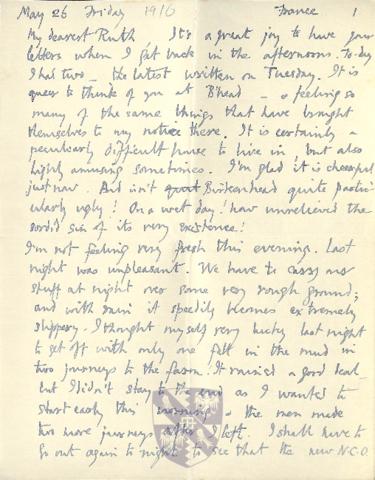 May 26 Friday 1916 France 1
My dearest Ruth It's a great joy to have your
letters when I get back in the afternoons. To-day
I had two – the latest written on Tuesday. It is
queer to think of you at B'head – & feeling so
many of the same things that have brought
themselves to my notice there. It is certainly a
peculiarly difficult house to live in but also
highly amusing sometimes. I'm glad it is cheerful
just now. And isn't Birkenhead quite partic-
ularly ugly! On a wet day! how unrelieved the
sordid sin of its very existence!
I'm not feeling very fresh this evening. Last
night was unpleasant. We have to carry our
stuff at night over some very rough ground;
and with rain it speedily becomes extremely
slippery. I thought myself very lucky last night
to get off with only one fall in the mud in
two journeys to the fason. It rained a good deal
but I didn't stay to the end as I wanted to
start early this morning & the men made
two more journeys after I left. I shall have to
go out again to night to see that the new N.C.O.